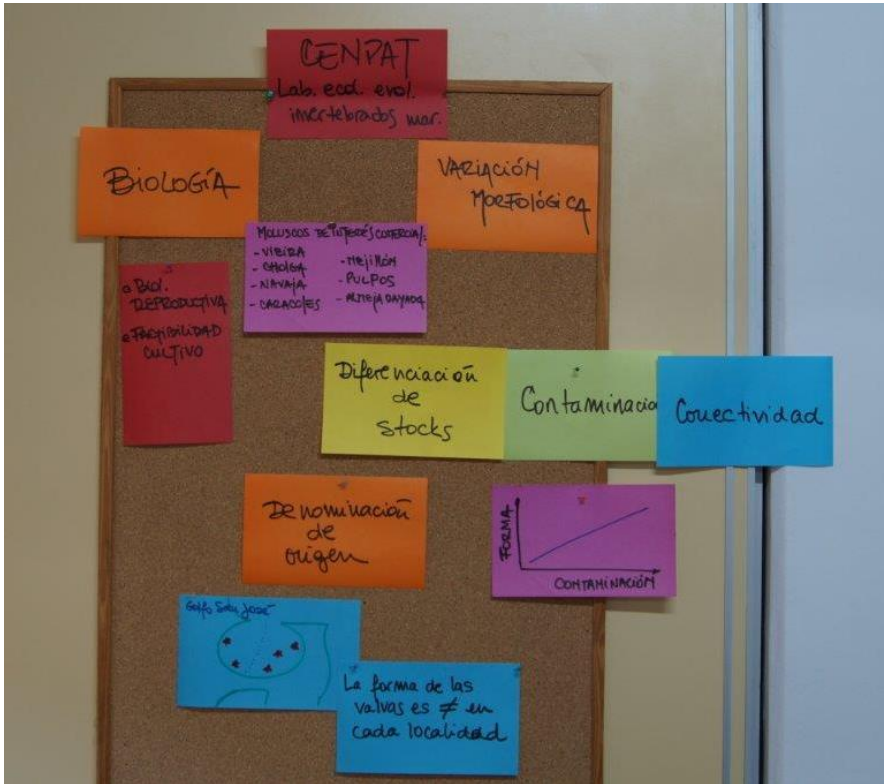 CENPAT
Lab. ecol. evol.
invertebrados mar.
BIOLOGÍA
VARIACIÓN
MORFOLÓGICA
MOLUSCOS DE INTERÉS COMERCIAL:
- VIEIRA
- CHOLGA
- NAVAJA
- CARACOLES
- MEJILLÓN
- PULPOS
- ALMEJA RAYADA
BIOL.
REPRODUCTIVA
FACTIBILIDAD
CULTIVO
Diferenciación
de
stocks
Contaminació
Conectividad
Denominación
de
origen
FORMA
CONTAMINACIÓN
Golfo San José
La forma de las
valvas es ≠ en
cada localidad